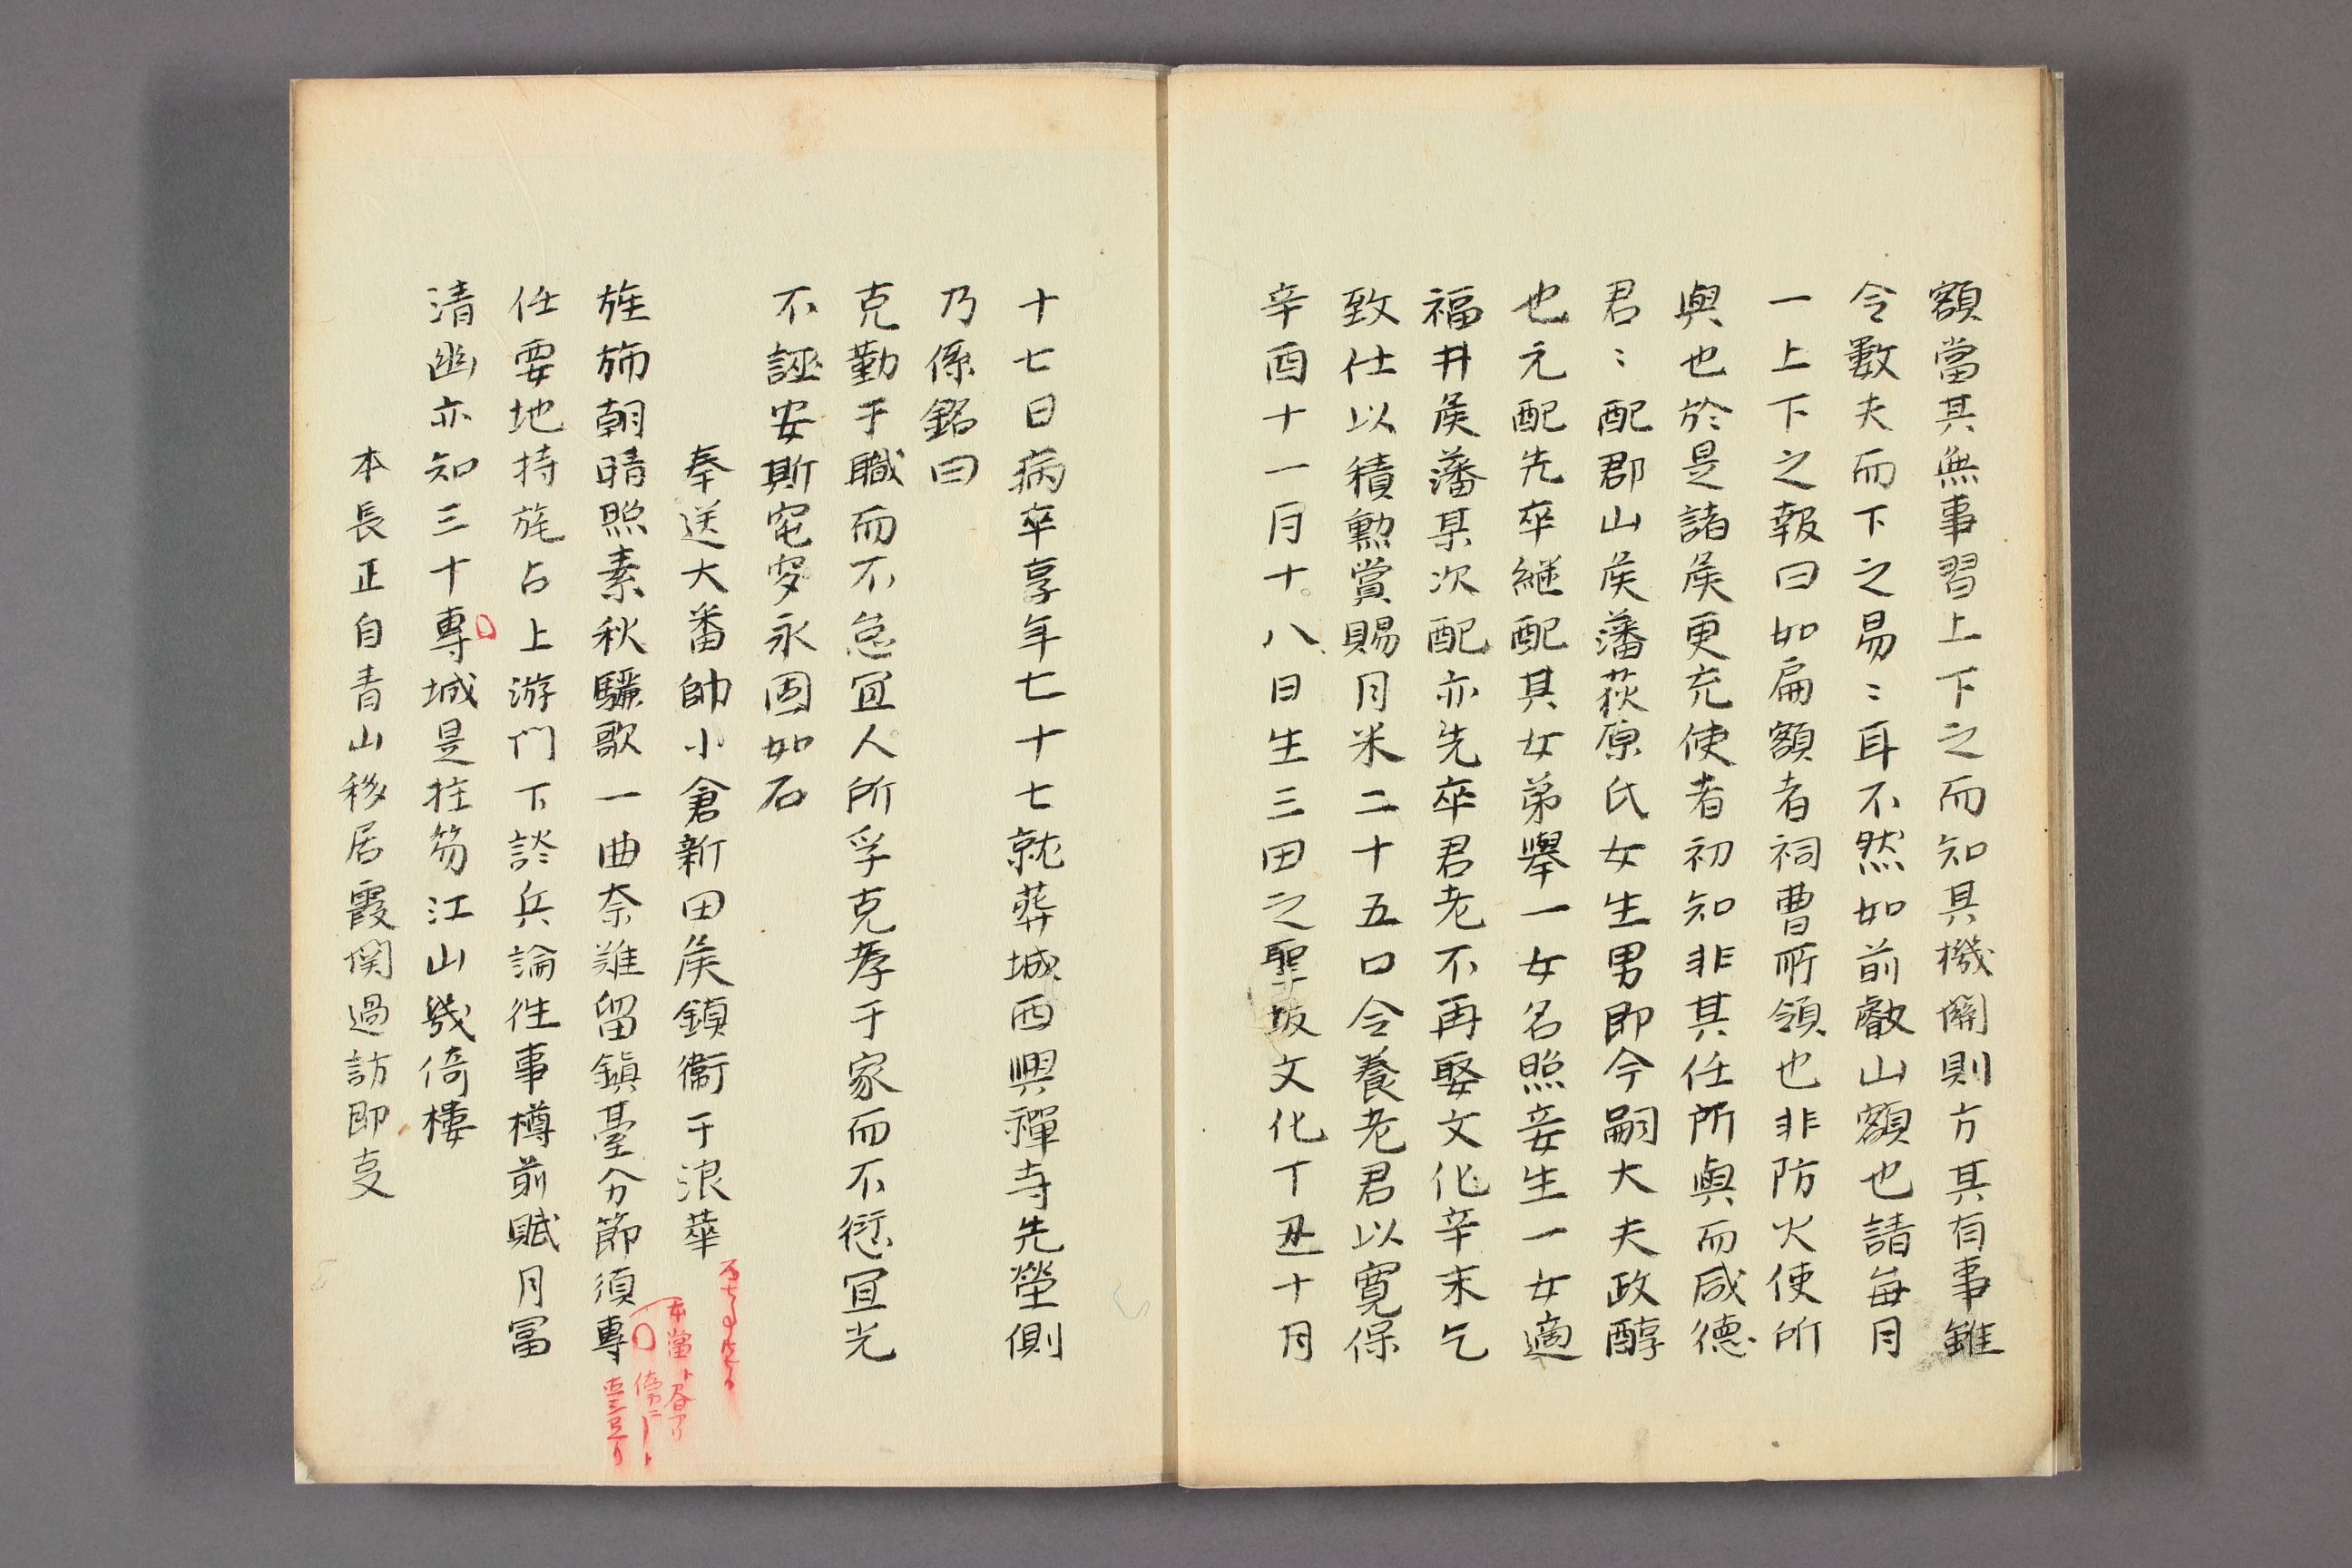 額當其無事習上下之而知其機關則方其有事雖
令數夫而下之易〻耳不然如前敲山額也請每月
一上下之報曰如扁額者祠曹所領也非防火使所
與也於是諸矦更充使者初知非其任所與而咸德
君〻配郡山矦藩荻原氏女生男即今嗣大夫政醇
也元配先卒継配其女弟舉一女名照妾生一女適
福井矦藩某次配亦先卒君老不再娶文化辛未乞
致仕以積勲賞賜月米二十五口令養老君以寛保
辛酉十一月十八日生三田之聖坂文化丁丑十月
十七日病卒享年七十七就葬城西興禪寺先塋側
乃係銘曰
克勤于職而不怠宜人所孚克孝于家而不愆宜光
不誣安斯窀穸永固如石
奉送大番帥小倉新田矦鎮衞于浪華
旌斾朝晴照素秋驪歌一曲奈難留鎮臺分節須專
任要地持旄占上游門下談兵論徃事樽前賦月冨
清幽亦知三十專城是拄笏江山幾倚樓
本長正自青山移居霞関過訪即支